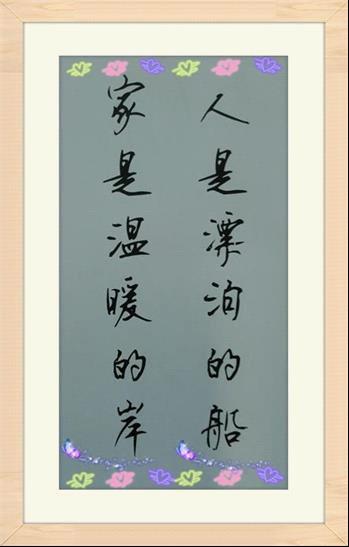 人是漂泊的船
家是温暖的岸